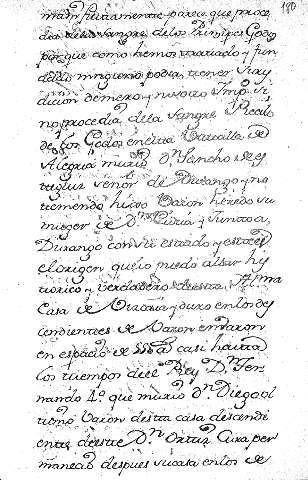 180
madre juntamente parece que proce
dia de la sangre de los Principes Godos
porque como hemos tratado y fun
dado ninguno podia tener Jurisdi
dicion de mero y mixto Imperio si
no procedia de la sangre Real
de los Godos en esta Batalla de
murio Dn Sancho de es
tiguiz señor de Durango y no
teniendo hijo Varon heredo su
muger de Dn y Junto a
Durango con su estado y este es
el origen que io puedo allar his
torico y verdadero desta
Casa de Vizcaia y duro en los des
cendientes de Varon en Varon
en espacio de casi hasta
los tiempos del Rey Dn Fer
nando 4o que murio Dn Diego ol
timo Varon desta casa descendi
ente deste Dn Ortiz Cuia per
manecio despues su casa en los de